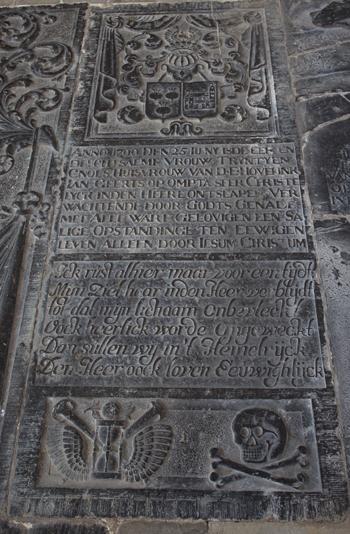 ANNO 1700 DEN 25 IUNY IS DE EER EN
DEUCHTSAEME VROUW TRYNTYEN
CNOLS HUISVROUW VAN D. E. HOVELINK
IAN GEERTS OP OMPTA SEER CHRISTE
LYCK IN DEN HEERE ONTSLAPEN VER
WACHTENDE DOOR GODTS GENADE
MET ALLE WARE GELOVIGEN EEN SA
LIGE OPSTANDINGE TEN EEWIGEN
LEVEN ALLEEN DOOR IESUM CHRISTUM
Ick rust alhier maar voor een tydt
Mijn Ziel haar in den Heer verblydt
tot dat mijn lichaam onbevleckt
Oock heerlick worde opgeweckt
Dan sullen wij in't Hemelrijck
Den Heer oock loven Eeuwighlijck